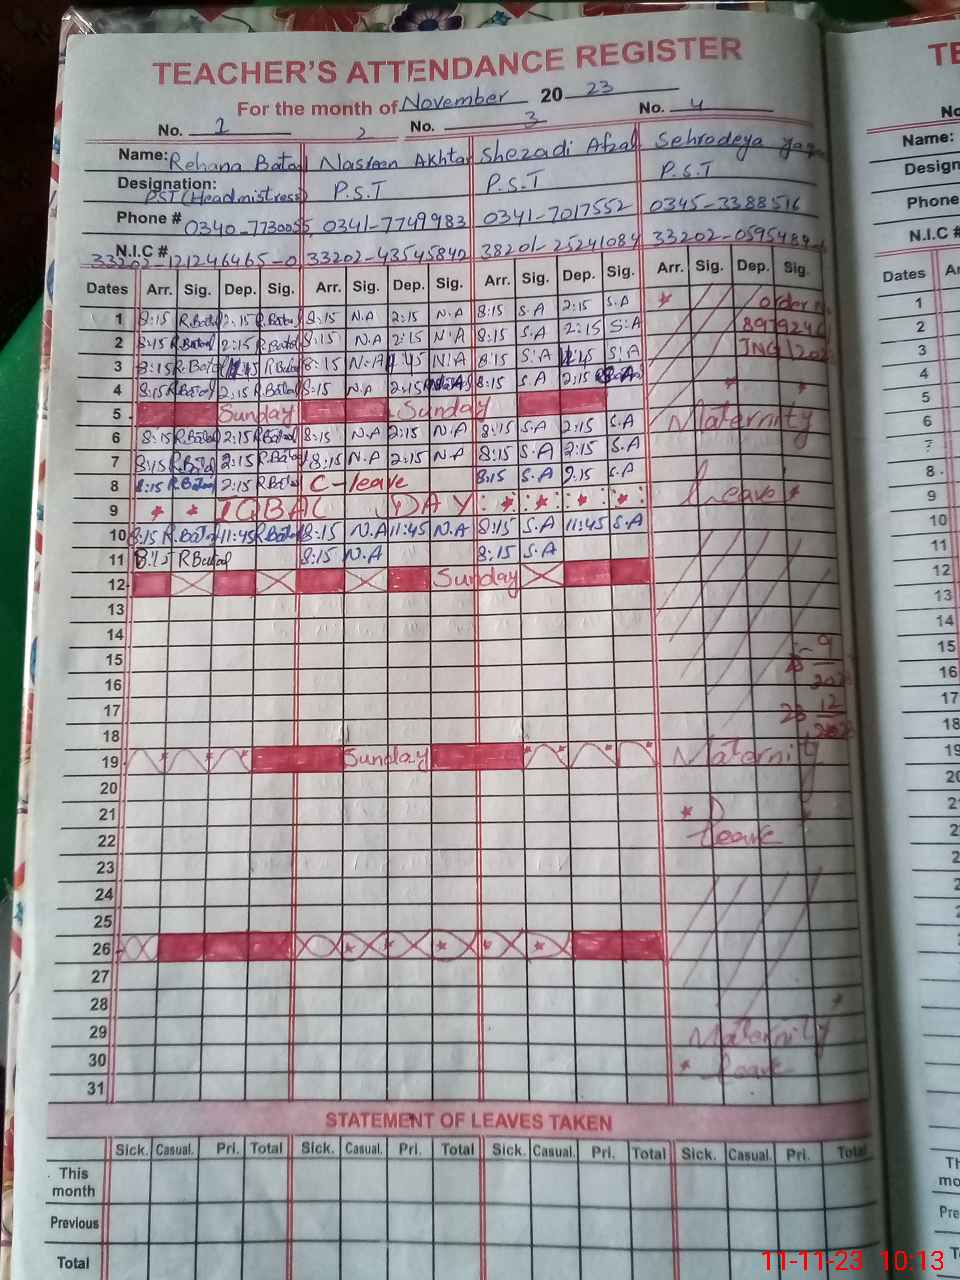 TEACHER'S ATTENDANCE REGISTER
For the month of November 2023
No. 1 2 No. 3 No. 4
Name: Rehana Batool Nasreen Akhtar Shezadi Afzal Sehrodeya
Designation: PST (Headmistress) P.S.T P.S.T P.S.T
Phone # 0340-7730055 0341-7749983 0341-7017552 0345-3388516
N.I.C # 33202-121246465-0 33202-43545842 38201-25241084 33202-0595484
Dates Arr. Sig. Dep. Sig. Arr. Sig. Dep. Sig. Arr. Sig. Dep. Sig. Arr. Sig. Dep. Sig.
1 8:15 R.Batool 2:15 R.Batool 8:15 N.A 2:15 N.A 8:15 S.A 2:15 S.A order
2 8:15 R.Batool 2:15 R.Batool 8:15 N.A 2:15 N.A 8:15 S.A 2:15 S.A
3 8:15 R.Batool R.Batool 8:15 N.A N.A 8:15 S.A S.A
4 8:15 R.Batool 2:15 R.Batool 8:15 N.A 2:15 8:15 S.A 2:15 S.A
5 Sunday Sunday
6 8:15 R.Batool 2:15 R.Batool 8:15 N.A 2:15 N.A 8:15 S.A 2:15 S.A Maternity
7 8:15 R.Batool 2:15 R.Batool 8:15 N.A 2:15 N.A 8:15 S.A 2:15 S.A
8 8:15 R.Batool 2:15 R.Batool C-leave 8:15 S.A 2:15 S.A
9 IQBAL DAY leave
10 8:15 R.Batool 11:45 R.Batool 8:15 N.A 11:45 N.A 8:15 S.A 11:45 S.A
11 8:15 R Batool 8:15 N.A 8:15 S.A
12 Sunday
13
14
15
16
17
18
19 Sunday Maternity
20
21
22 leave
23
24
25
26
27
28
29 Maternity
30 leave
31
STATEMENT OF LEAVES TAKEN
Sick. Casual. Pri. Total Sick. Casual. Pri. Total Sick. Casual. Pri. Total Sick. Casual. Pri. Total
This month
Previous
Total
11-11-23 10:13